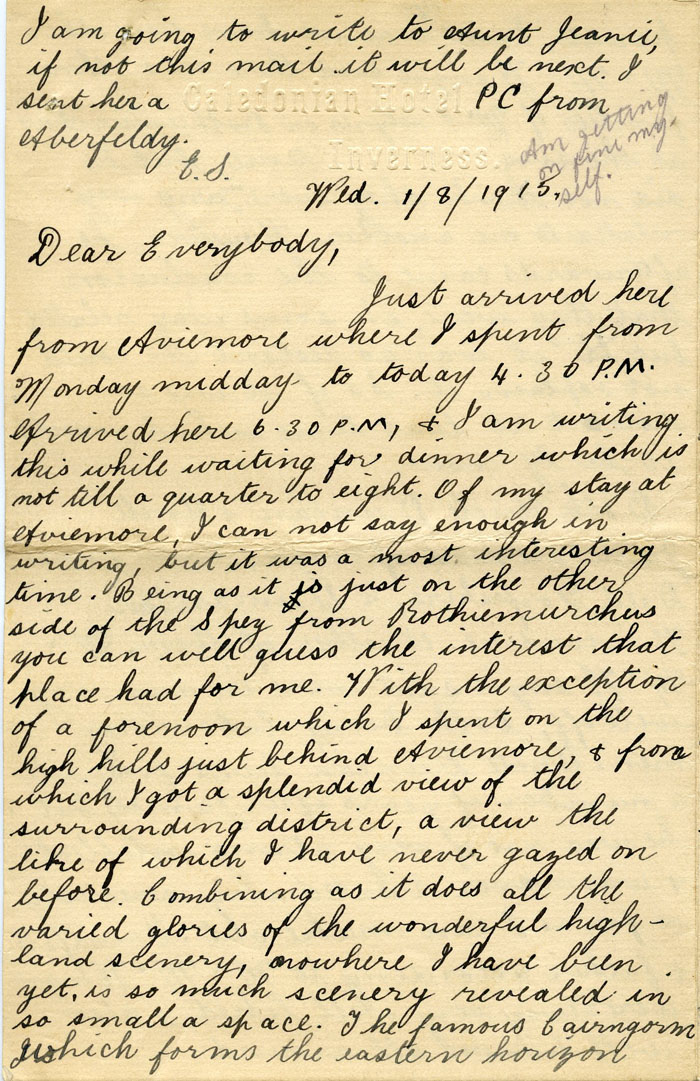 I am going to write to Aunt Jeanie,
if not this mail it will be next. I
sent her a PC from
Aberfeldy.
E.S.
Caledonian Hotel,
Inverness.
Am getting
on fine my-
self.
Wed. 1/8/1915.
Dear Everybody,
Just arrived here
from Aviemore where I spent from
Monday midday to today 4.30 P.M.
Arrived here 6.30 P.M, & I am writing
this while waiting for dinner which is
not till a quarter to eight. Of my stay at
Aviemore, I can not say enough in
writing, but it was a most interesting
time. Being as it is just on the other
side of the Spey from Rothiemurchus
you can well guess the interest that
place had for me. With the exception
of a forenoon which I spent on the
high hills just behind Aviemore, & from
which I got a splendid view of the
surrounding district, a view the
like of which I have never gazed on
before. Combining as it does all the
varied glories of the wonderful high-
land scenery, nowhere I have been
yet, is so much scenery revealed in
so small a space. The famous Cairngorm
which forms the eastern horizon